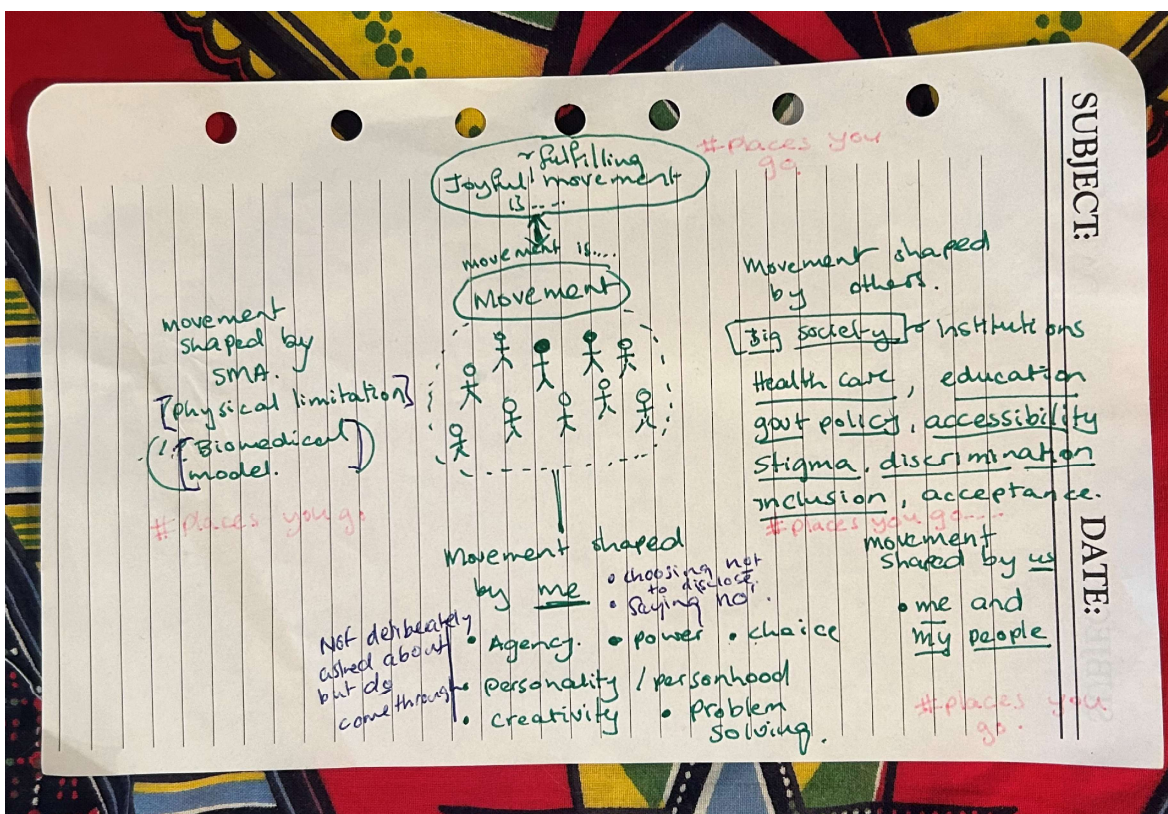 SUBJECT:
DATE:
#places you
go.
~fulfilling
Joyful movement
is....
movement is....
Movement
movement
shaped by
SMA.
[physical limitation]
Biomedical
model.
#places you go
Movement shaped
by others.
Big society institutions
Health care, education
govt policy, accessibility
stigma, discrimination
inclusion, acceptance.
#places you go....
movement
shaped by us
• me and
my people
#places you
go.
Movement shaped
by me
• choosing not
to disclose.
• saying no.
• Agency. • power • choice
• personality / personhood
• creativity • problem
solving.
Not deliberately
asked about
but do
come through